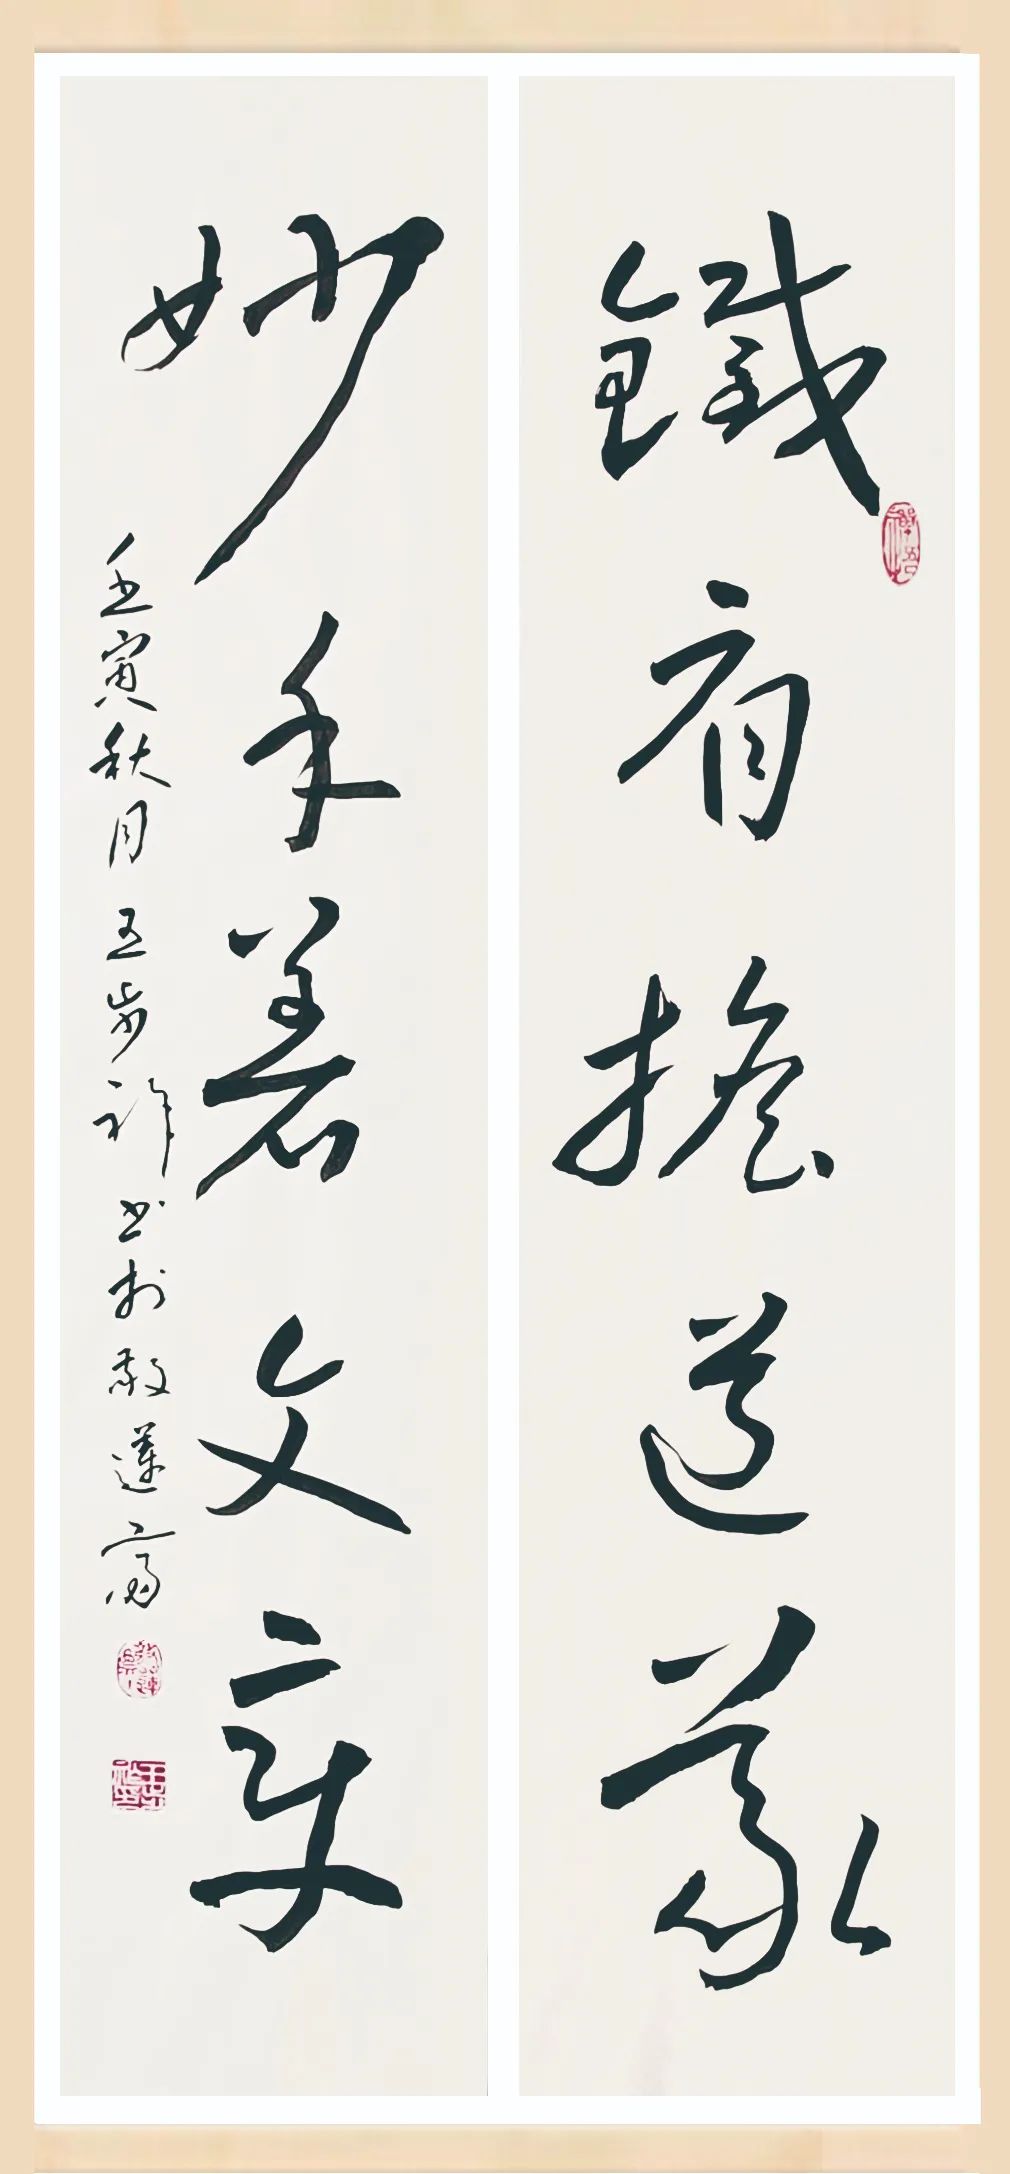 鐵肩擔道義
妙手著文章
壬寅秋月王步祥書於敬蓮齋